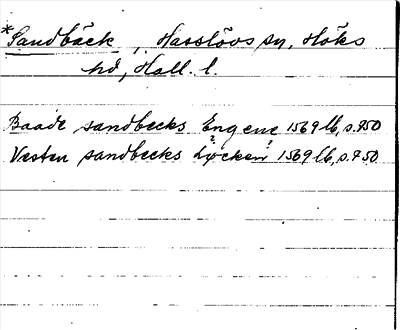 *Sandbäck, Hasslövs sn, Höks
hd, Hall. l.
Baade sandbecks Engene 1569 lb, s. 950
Vesten sandbecks Løcken 1569 lb, s. 950